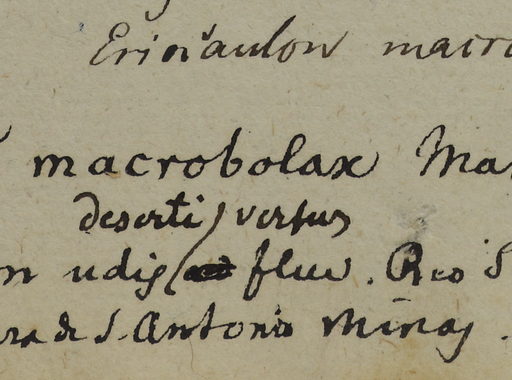 Eriocaulon macro
macrobolax Mar
deserti versus
n udis fluv. Rio S
ra de S. Antonio Minas.